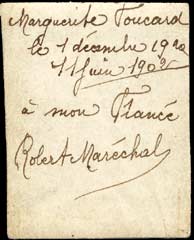 Marguerite Toucard
le 1 décembre 19
11 Juin 190
à mon Fiancé
Robert Maréchal